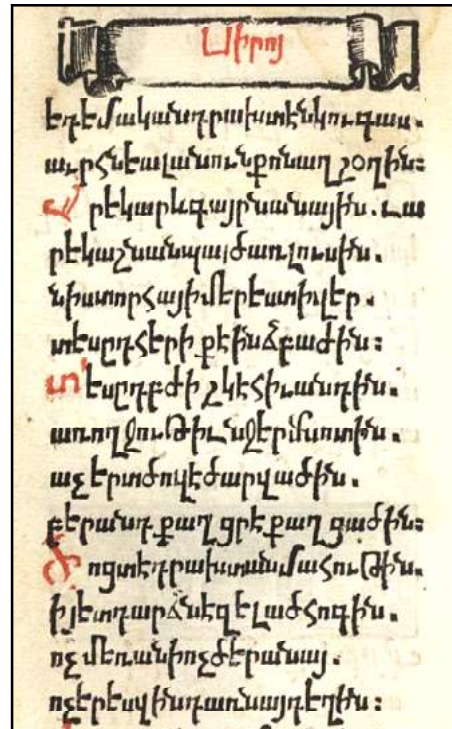 Սիրոյ
եդէմականդրախտէնկուգաս.
աւրհնեալանունքոնաղշօղին։
րէկարևգայրնանային.
րէկաշնանպայծառլուսին.
նիստորհայիմերեստիվեր.
տեսըդհերիքէինձբաժին։
տեսըդբժիշկէհիւանդին.
առողջութիւնջերմոտին.
աչերտծովէծարվածին.
բերանդքաղցրէքաղցածին։
ծոցտէդրախտանմահութին.
իյետդարձնէզելածհոգին.
ոչմեռանիոչծերանայ.
ոչերեսվինդառնայդեղին։